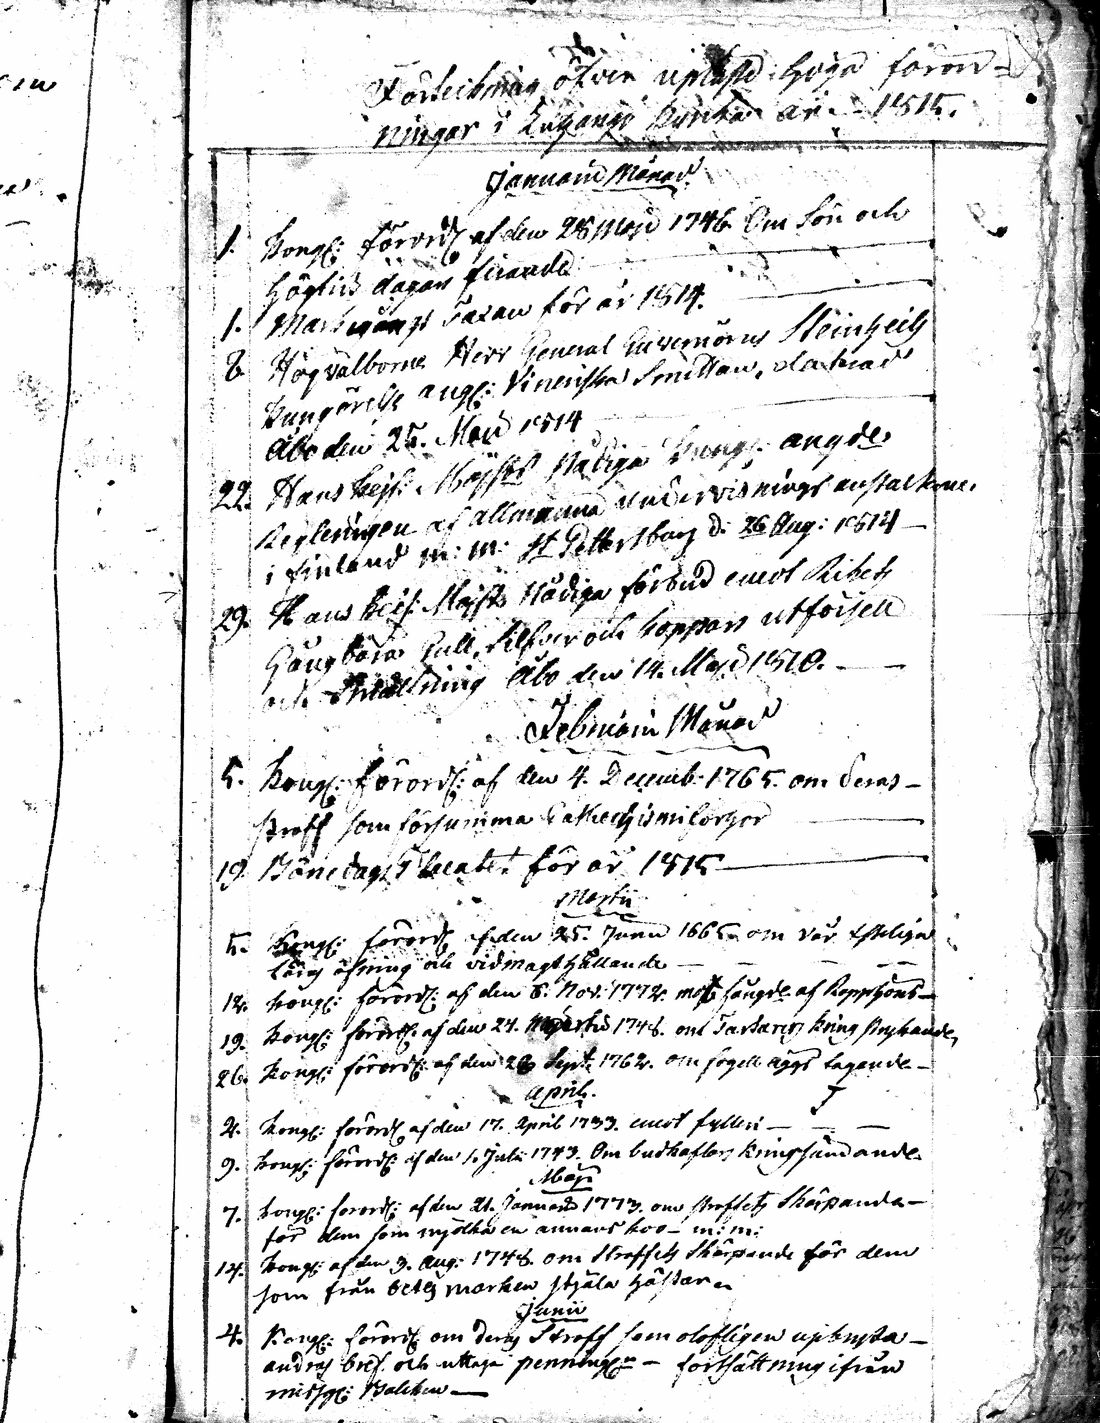 Förteckning öfver uplässte Höga föror-
ningar i Kyrka år 1815.
Januarii Månad
1. Kongl: förordn: af den 28 Maji 1746. Om Sön och
Högtids dagars firande
1. Markegångs Taxan för år 1814.
8. Högvälborne Herr General Guverneurns Steinheils
Kungörelse angl: Veneriska Smittan, daterad
Åbo den 25. Maji 1814
22. Hans Kejs: Maj:sts Nådiga Kung: angde
Regleringen af allmänna undervisnings anstalterne
i Finland m: m: St Pettersburg d: 26 Aug: 1814
29. Hans Kejs: Maj:sts Nådiga förbud emot Rikets
Gångbara Gull, Silfver och Koppars utförsell
och Smältning Åbo den 14. Maji 1810.
Februarii Månad
5. Kongl: förord: af den 4. Decemb: 1765. om deras
straff som försumma Cathechismi förhör
19. Bönedags Placatet för år 1815
Martii
5. Kongl: förord: af den 25. Junii 1665. om vår
läras öfning och vidmagthållande
12. Kongl: förord: af den 6. Nov: 1772. af Rapphöns
19. Kongl: förord: af den 24. Martii 1748. om Tartarers kring strykande
26. Kongl: förord: af den Sept: 1762. om fogell äggs tagande
April.
2. Kongl: förord: af den 17. April 1733. emot fylleri
9. Kongl: förord: af den 1. Julii 1743. Om budkaflars kringsändande
Maji
7. Kongl: förord: af den 21. Januarii 1773. om straffets Skärpande
för dem som mjölka en annans koo m: m:
14. Kongl: af den 9. Aug: 1748. om Straffets Skärpande för dem
som från betes marken stjäla hästar
Junii
4. Kongl: förord: om deras Straff som olofligen upbryta
andras bref och uttaga penningar fortsättning ifrån
missgl: Balcken